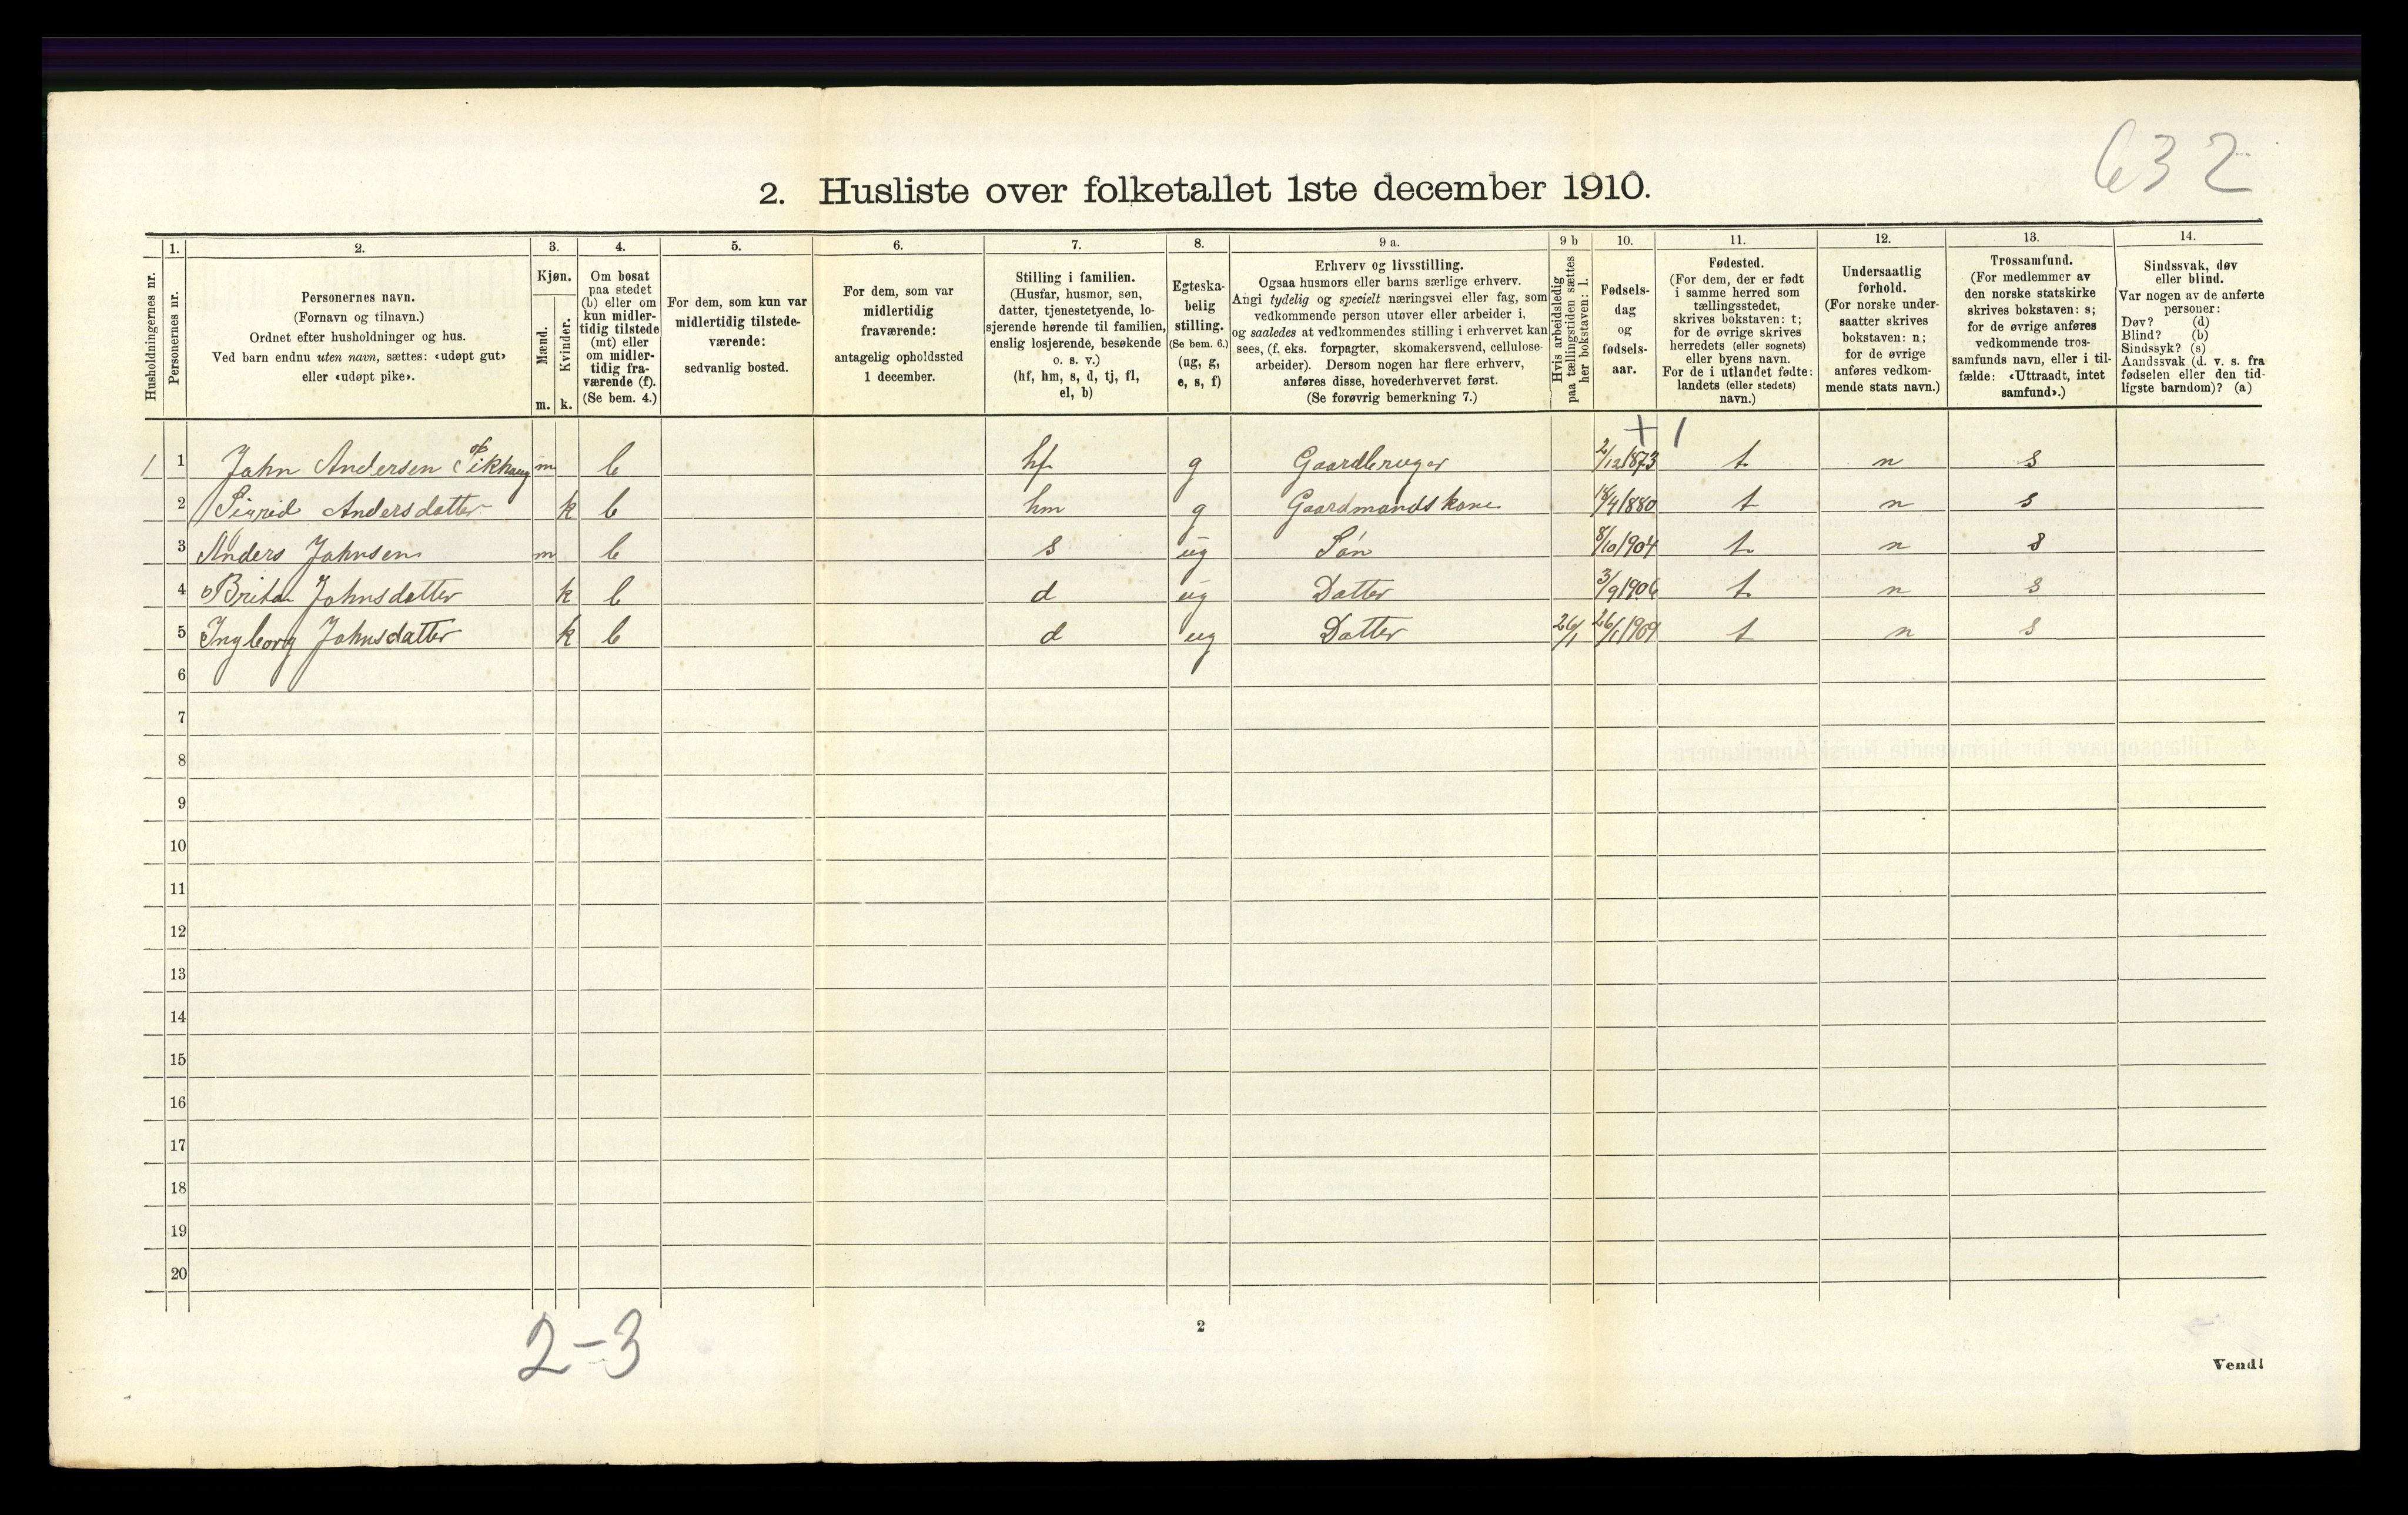 632
2. Husliste over folketallet 1ste december 1910.
Husholdningernes nr.
1.
Personernes nr.
2.
Personernes navn.
(Fornavn og tilnavn.)
Ordnet efter husholdninger og hus.
Ved barn endnu uten navn, sættes: «udøpt gut»
eller «udøpt pike».
3.
Kjøn.
Mænd.
Kvinder.
m. k.
4.
Om bosat
paa stedet
(b) eller om
kun midler-
tidig tilstede
(mt) eller
om midler-
tidig fra-
værende (f).
(Se bem. 4.)
5.
For dem, som kun var
midlertidig tilstede-
værende:
sedvanlig bosted.
6.
For dem, som var
midlertidig
fraværende:
antagelig opholdssted
1 december.
7.
Stilling i familien.
(Husfar, husmor, søn,
datter, tjenestetyende, lo-
sjerende hørende til familien,
enslig losjerende, besøkende
o. s. v.)
(hf, hm, s, d, tj, fl,
el, b)
8.
Egteska-
belig
stilling.
(Se bem. 6.)
(ug, g,
e, s, f)
9 a.
Erhverv og livsstilling.
Ogsaa husmors eller barns særlige erhverv.
Angi tydelig og specielt næringsvei eller fag, som
vedkommende person utøver eller arbeider i,
og saaledes at vedkommendes stilling i erhvervet kan
sees, (f. eks. forpagter, skomakersvend, cellulose-
arbeider). Dersom nogen har flere erhverv,
anføres disse, hovederhvervet først.
(Se forøvrig bemerkning 7.)
9 b
Hvis arbeidsledig
paa tællingstiden sættes
her bokstaven: l.
10.
Fødsels-
dag
og
fødsels-
aar.
11.
Fødested.
(For dem, der er født
i samme herred som
tællingsstedet,
skrives bokstaven: t;
for de øvrige skrives
herredets (eller sognets)
eller byens navn.
For de i utlandet fødte:
landets (eller stedets)
navn.)
12.
Undersaatlig
forhold.
(For norske under-
saatter skrives
bokstaven: n;
for de øvrige
anføres vedkom-
mende stats navn.)
13.
Trossamfund.
(For medlemmer av
den norske statskirke
skrives bokstaven: s;
for de øvrige anføres
vedkommende tros-
samfunds navn, eller i til-
fælde: «Uttraadt, intet
samfund».)
14.
Sindssvak, døv
eller blind.
Var nogen av de anførte
personer:
Døv? (d)
Blind? (b)
Sindssyk? (s)
Aandssvak (d. v. s. fra
fødselen eller den tid-
ligste barndom)? (a)
+ 1
1 1 John Andersen m b hf g Gaardbruger 2/12 1873 t n s
2 Sigrid Andersdatter k b hm g Gaardmandskone 18/4 1880 t n s
3 Anders Johnsen m b s ug Søn 8/10 1904 t n s
4 Brita Johnsdatter k b d ug Datter 3/9 1906 t n s
5 Ingeborg Johnsdatter k b d ug Datter 26/1 26/1 1909 t n s
6
7
8
9
10
11
12
13
14
15
16
17
18
19
20
2-3
2
Vend!